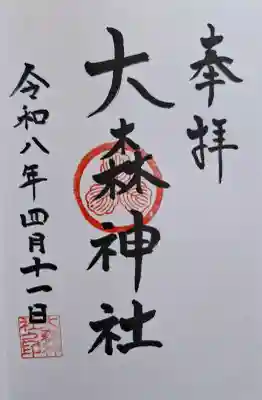 奉拝
大森神社
令和八年四月十一日